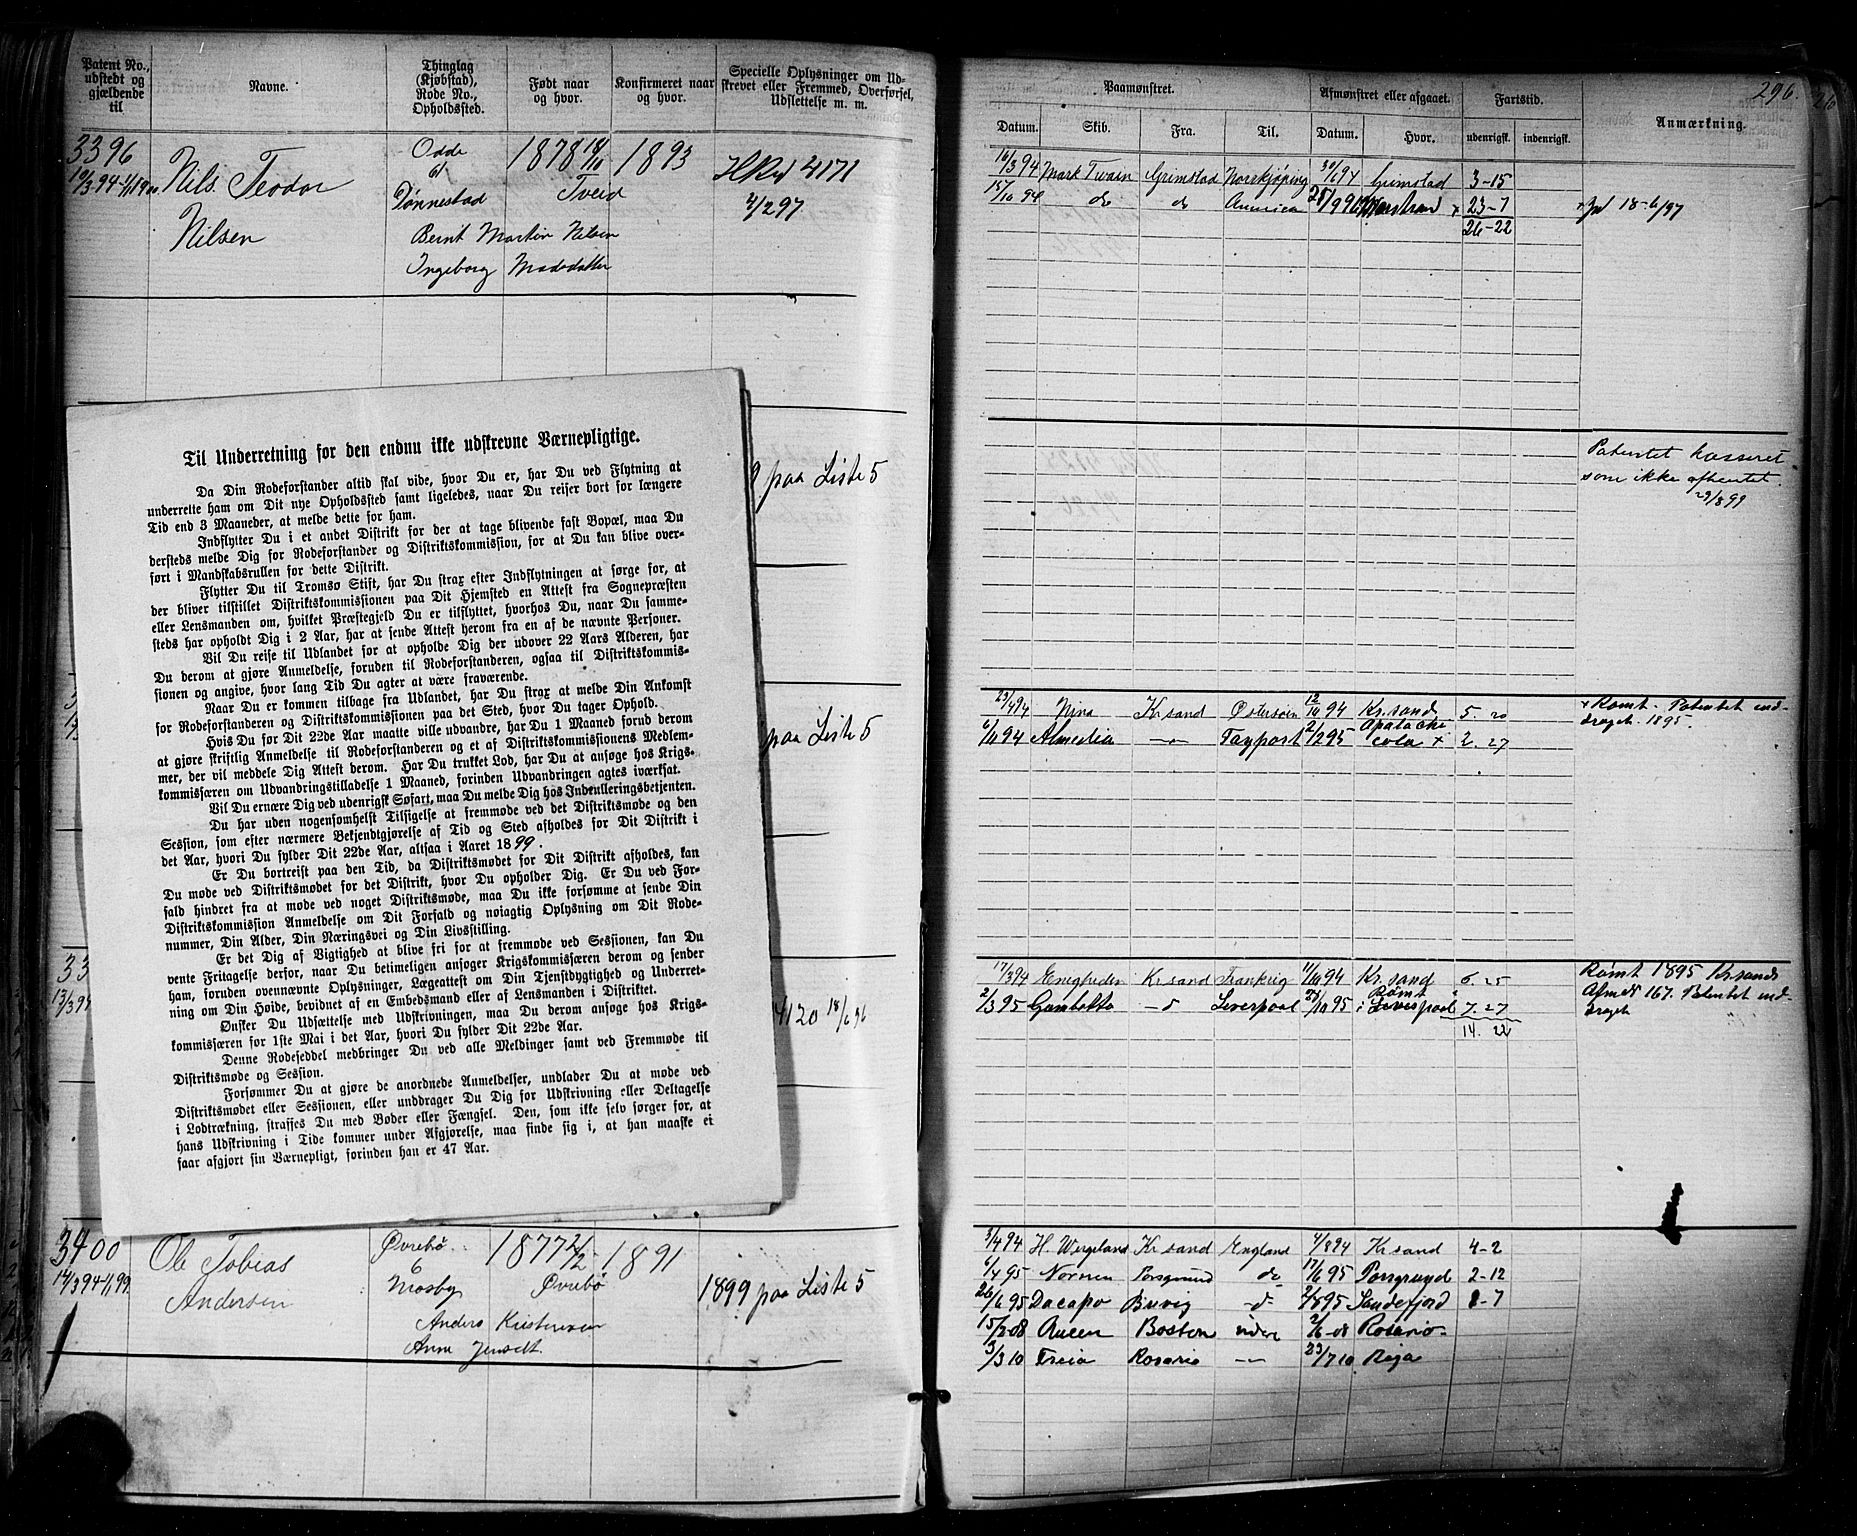 Patent No., udstedt og gjældende til
Navne.
Thinglag (Kjøbstad), Rode No., Opholdssted.
Født naar og hvor.
Konfirmeret naar og hvor.
Specielle Oplysninger om Udskrevet eller Fremmed, Overførsel, Udslettelse m. m.
3396
Nils Teodor
Nilsen
Odde
Tønnestad
1878 18/11
Tveid
1893
4171
4/2 97
Bernt Martin Nilsen
Ingeborg Madsdatter
Til Underretning for den endnu ikke udskrevne Værnepligtige.
Da Din Rodeforstander altid skal vide, hvor Du er, har Du ved Flytning at
underrette ham om Dit nye Opholdssted samt ligeledes, naar Du reiser bort for længere
Tid end 3 Maaneder, at melde dette for ham.
Indflytter Du i et andet Distrikt for der at tage blivende fast Bopæl, maa Du
dersteds melde Dig for Rodeforstander og Distriktskommission, for at Du kan blive over-
ført i Mandskabsrullen for dette Distrikt.
Flytter Du til Tromsø Stift, har Du strax efter Indflytningen at sørge for, at
der bliver tilstillet Distriktskommissionen paa Dit Hjemsted en Attest fra Sognepræsten
eller Lensmanden om, hvilket Præstegjeld Du er tilflyttet, hvorhos Du, naar Du samme-
steds har opholdt Dig i 2 Aar, har at sende Attest herom fra en af de nævnte Personer.
Vil Du reise til Udlandet for at opholde Dig der udover 22 Aars Alderen, har
Du derom at gjøre Anmeldelse, foruden til Rodeforstanderen, ogsaa til Distriktskommis-
sionen og angive, hvor lang Tid Du agter at være fraværende.
Naar Du er kommen tilbage fra Udlandet, har Du strax at melde Din Ankomst
for Rodeforstanderen og Distriktskommissionen paa det Sted, hvor Du tager Ophold.
Hvis Du før Dit 22de Aar maatte ville udvandre, har Du 1 Maaned forud derom
at gjøre skriftlig Anmeldelse til Rodeforstanderen og et af Distriktskommissionens Medlem-
mer, der vil meddele Dig Attest derom. Har Du trukket Lod, har Du at ansøge hos Krigs-
kommissæren om Udvandringstilladelse 1 Maaned, forinden Udvandringen agtes iværksat.
Vil Du ernære Dig ved udenrigsk Søfart, maa Du melde Dig hos Indrulleringsbetjenten.
Du har uden nogensomhelst Tilsigelse at fremmøde ved det Distriktsmøde og den
Session, som efter nærmere Bekjendtgjørelse af Tid og Sted afholdes for Dit Distrikt i
det Aar, hvori Du fylder Dit 22de Aar, altsaa i Aaret 1899.
Er Du bortreist paa den Tid, da Distriktsmødet for Dit Distrikt afholdes, kan
Du møde ved Distriktsmødet for det Distrikt, hvor Du opholder Dig. Er Du ved For-
fald hindret fra at møde ved noget Distriktsmøde, maa Du ikke forsømme at sende Din
Distriktskommission Anmeldelse om Dit Forfald og nøiagtig Oplysning om Dit Rode-
nummer, Din Alder, Din Næringsvei og Din Livsstilling.
Er det Dig af Vigtighed at blive fri for at fremmøde ved Sessionen, kan Du
vente Fritagelse derfor, naar Du betimeligen ansøger Krigskommissæren derom og sender
ham, foruden ovennævnte Oplysninger, Lægeattest om Din Tjenstdygtighed og Underret-
ning om Din Høide, bevidnet af en Embedsmand eller af Lensmanden i Distriktet.
Ønsker Du Udsættelse med Udskrivningen, maa Du derom ansøge hos Krigs-
kommissæren før 1ste Mai i det Aar, hvori Du fylder Dit 22de Aar.
Denne Rodeseddel medbringer Du ved alle Meldinger samt ved Fremmøde til
Distriktsmøde og Session.
Forsømmer Du at gjøre de anordnede Anmeldelser, undlader Du at møde ved
Distriktsmødet eller Sessionen, eller unddrager Du Dig for Udskrivning eller Deltagelse
i Lodtrækning, straffes Du med Bøder eller Fængsel. Den, som ikke selv sørger for, at
hans Udskrivning i Tide kommer under Afgjørelse, maa finde sig i, at han maaske ei
faar afgjort sin Værnepligt, forinden han er 47 Aar.
9 paa Liste 5
paa Liste 5
33
13/3 94
4120 18/6 96
3400
14/3 94-1/1 99
Ole Tobias
Andersen
Øvrebø
6
Mosby
1877 2/2
Øvrebø
1891
1899 paa Liste 5
Anders Kristensen
Anne Jensdt
296.
Paamønstret.
Afmønstret eller afgaaet.
Fartstid.
Anmærkning.
Datum. Skib. Fra. Til. Datum. Hvor. udenrigsk. indenrigsk.
16/3 94 Mark Twain Grimstad Norrkjøping 30/6 94 Grimstad 3-15
15/10 94 do do America Marstrand + 23-7
26-22
18-6/97
Patentet kasseret
som ikke afhentet.
29/8 99
23/4 94 Nina Kr.sand Østersøen 12/10 94 Kr.sand 5. 20
6/11 94 Almedia -"- Tayport 2/2 95 Apalachicola + 2. 27
+ Rømt. Patentet ind-
draget. 1895.
17/3 94 Enigheden Kr sand Frankrig 11/10 94 Kr.sand 6. 25
2/3 95 Gambetta -"- Liverpool 29/10 95 Rømt i Liverpool 7. 27
14. 22
Rømt 1895 Kr.sands
Afmdt 167. Patentet ind-
draget
3/4 94 H. Wergeland Kr sand England 4/8 94 Kr sand 4-2
6/4 95 Normen Porsgrund do 17/6 95 Porsgrund 2-12
26/6 95 Dacapo Brevig -d- 2/8 95 Sandefjord 1-7
15/2 08 Boston 2/6-08 Rosario
3/3 10 Freia Rosario -"- 23/7 10 Riga